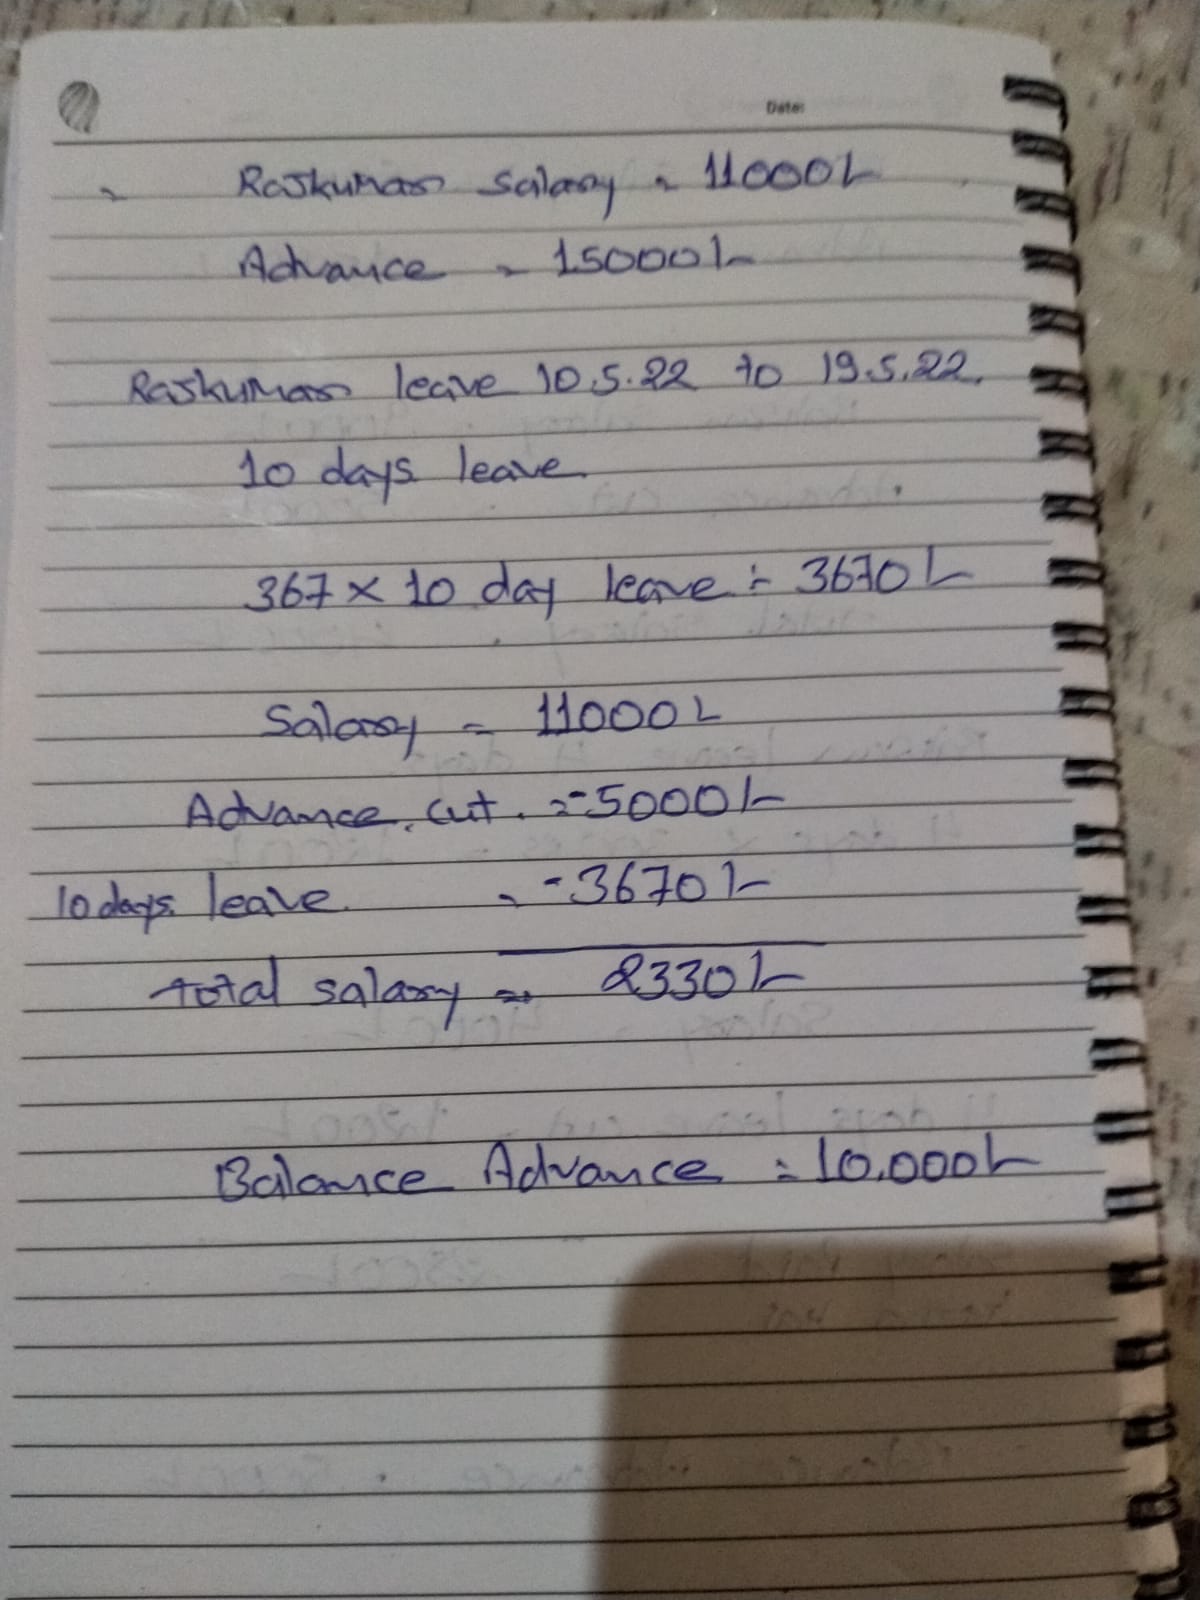 Date:
Rajkumar salary = 11000/-
Advance = 15000/-
Rajkumar leave 10.5.22 to 19.5.22.
10 days leave
367 x 10 day leave = 3670/-
Salary = 11000/-
Advance. cut. = -5000/-
10 days. leave. = -3670/-
total salary = 2330/-
Balance Advance = 10.000/-